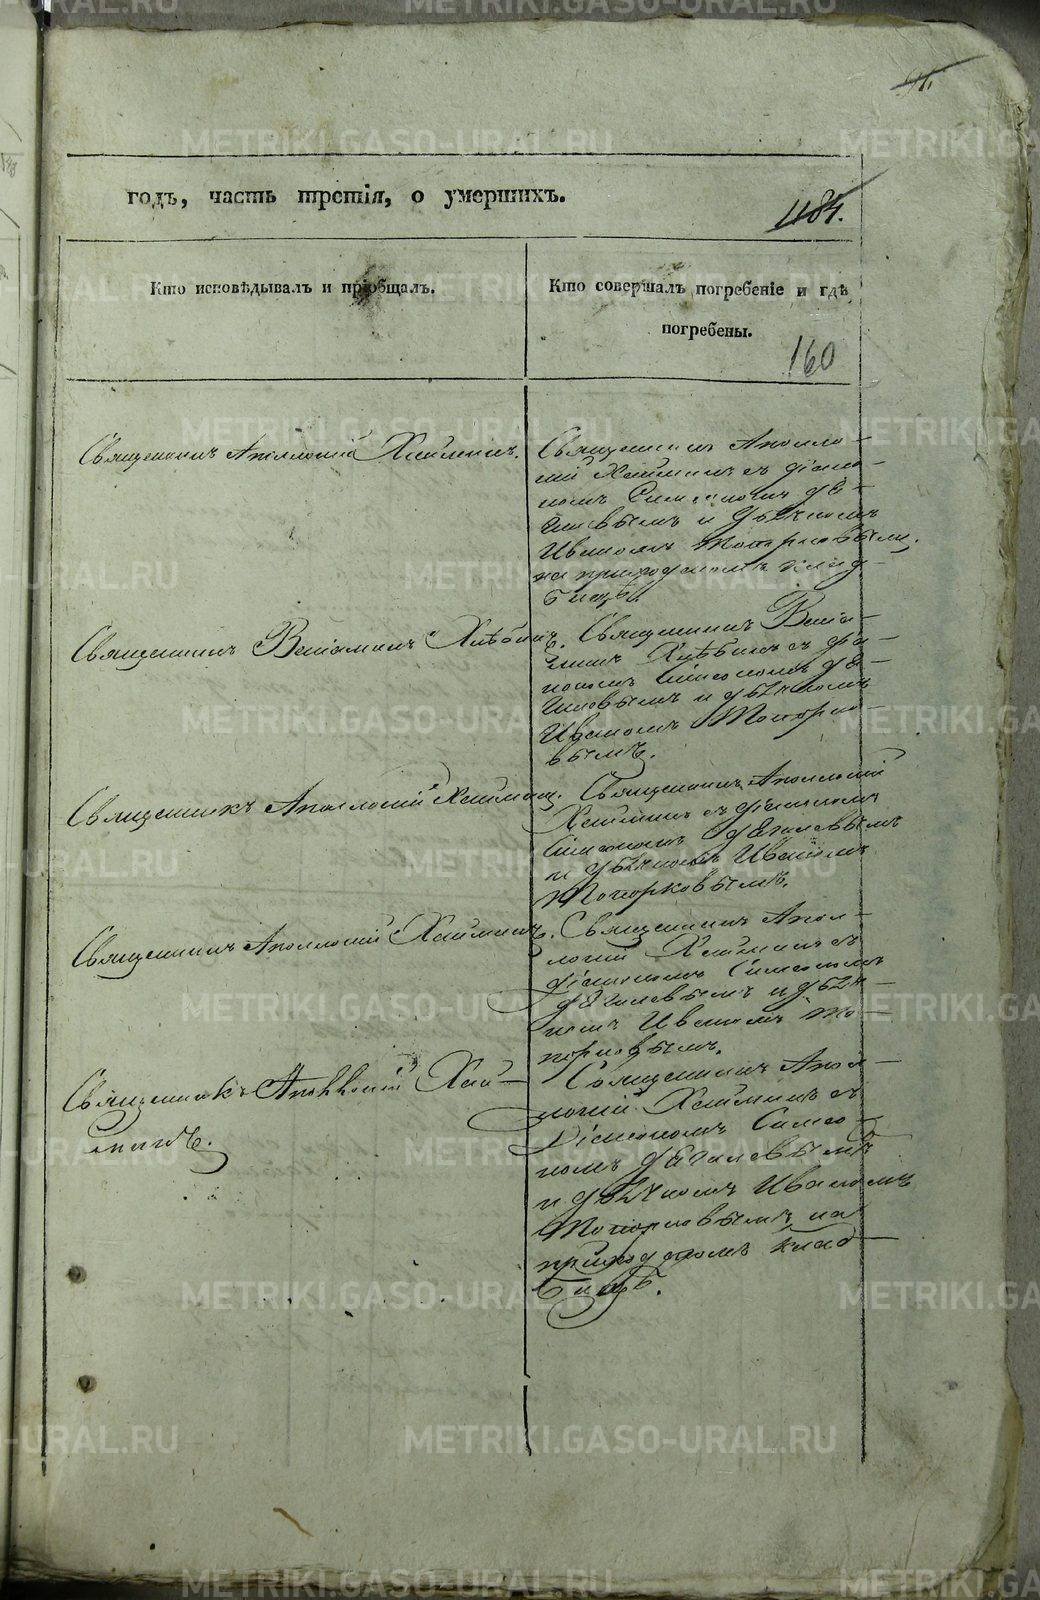 METRIKI.GASO-URAL.RU
91.
годъ, часть третія, о умершихъ.
1184.
Кто исповѣдывалъ и пріобщалъ.
Кто совершалъ погребеніе и гдѣ
погребены.
160
Священникъ Аполлоній Хаминъ.
Священникъ Аполло-
ній Хаминъ съ діако-
номъ Симеономъ
и дьячкомъ
Иваномъ Топорковымъ,
на приходскомъ клад-
бищѣ.
Священникъ Веніаминъ Хлѣбинъ.
Священникъ Веніа-
минъ Хлѣбинъ съ діа-
кономъ Симеономъ
и дьячкомъ
Иваномъ Топорко-
вымъ.
Священникъ Аполлоній
Священникъ Аполлоній
съ діакономъ
Симеономъ
и дьячкомъ Иваномъ
Топорковымъ.
Священникъ Аполлоній
Священникъ Апол-
лоній съ
діакономъ Симеономъ
и дьяч-
комъ Иваномъ То-
порковымъ.
Священникъ Аполлоній
Священникъ Апол-
лоній съ
діакономъ Симео-
номъ
и дьячкомъ Иваномъ
Топорковымъ на
приходскомъ клад-
бищѣ.